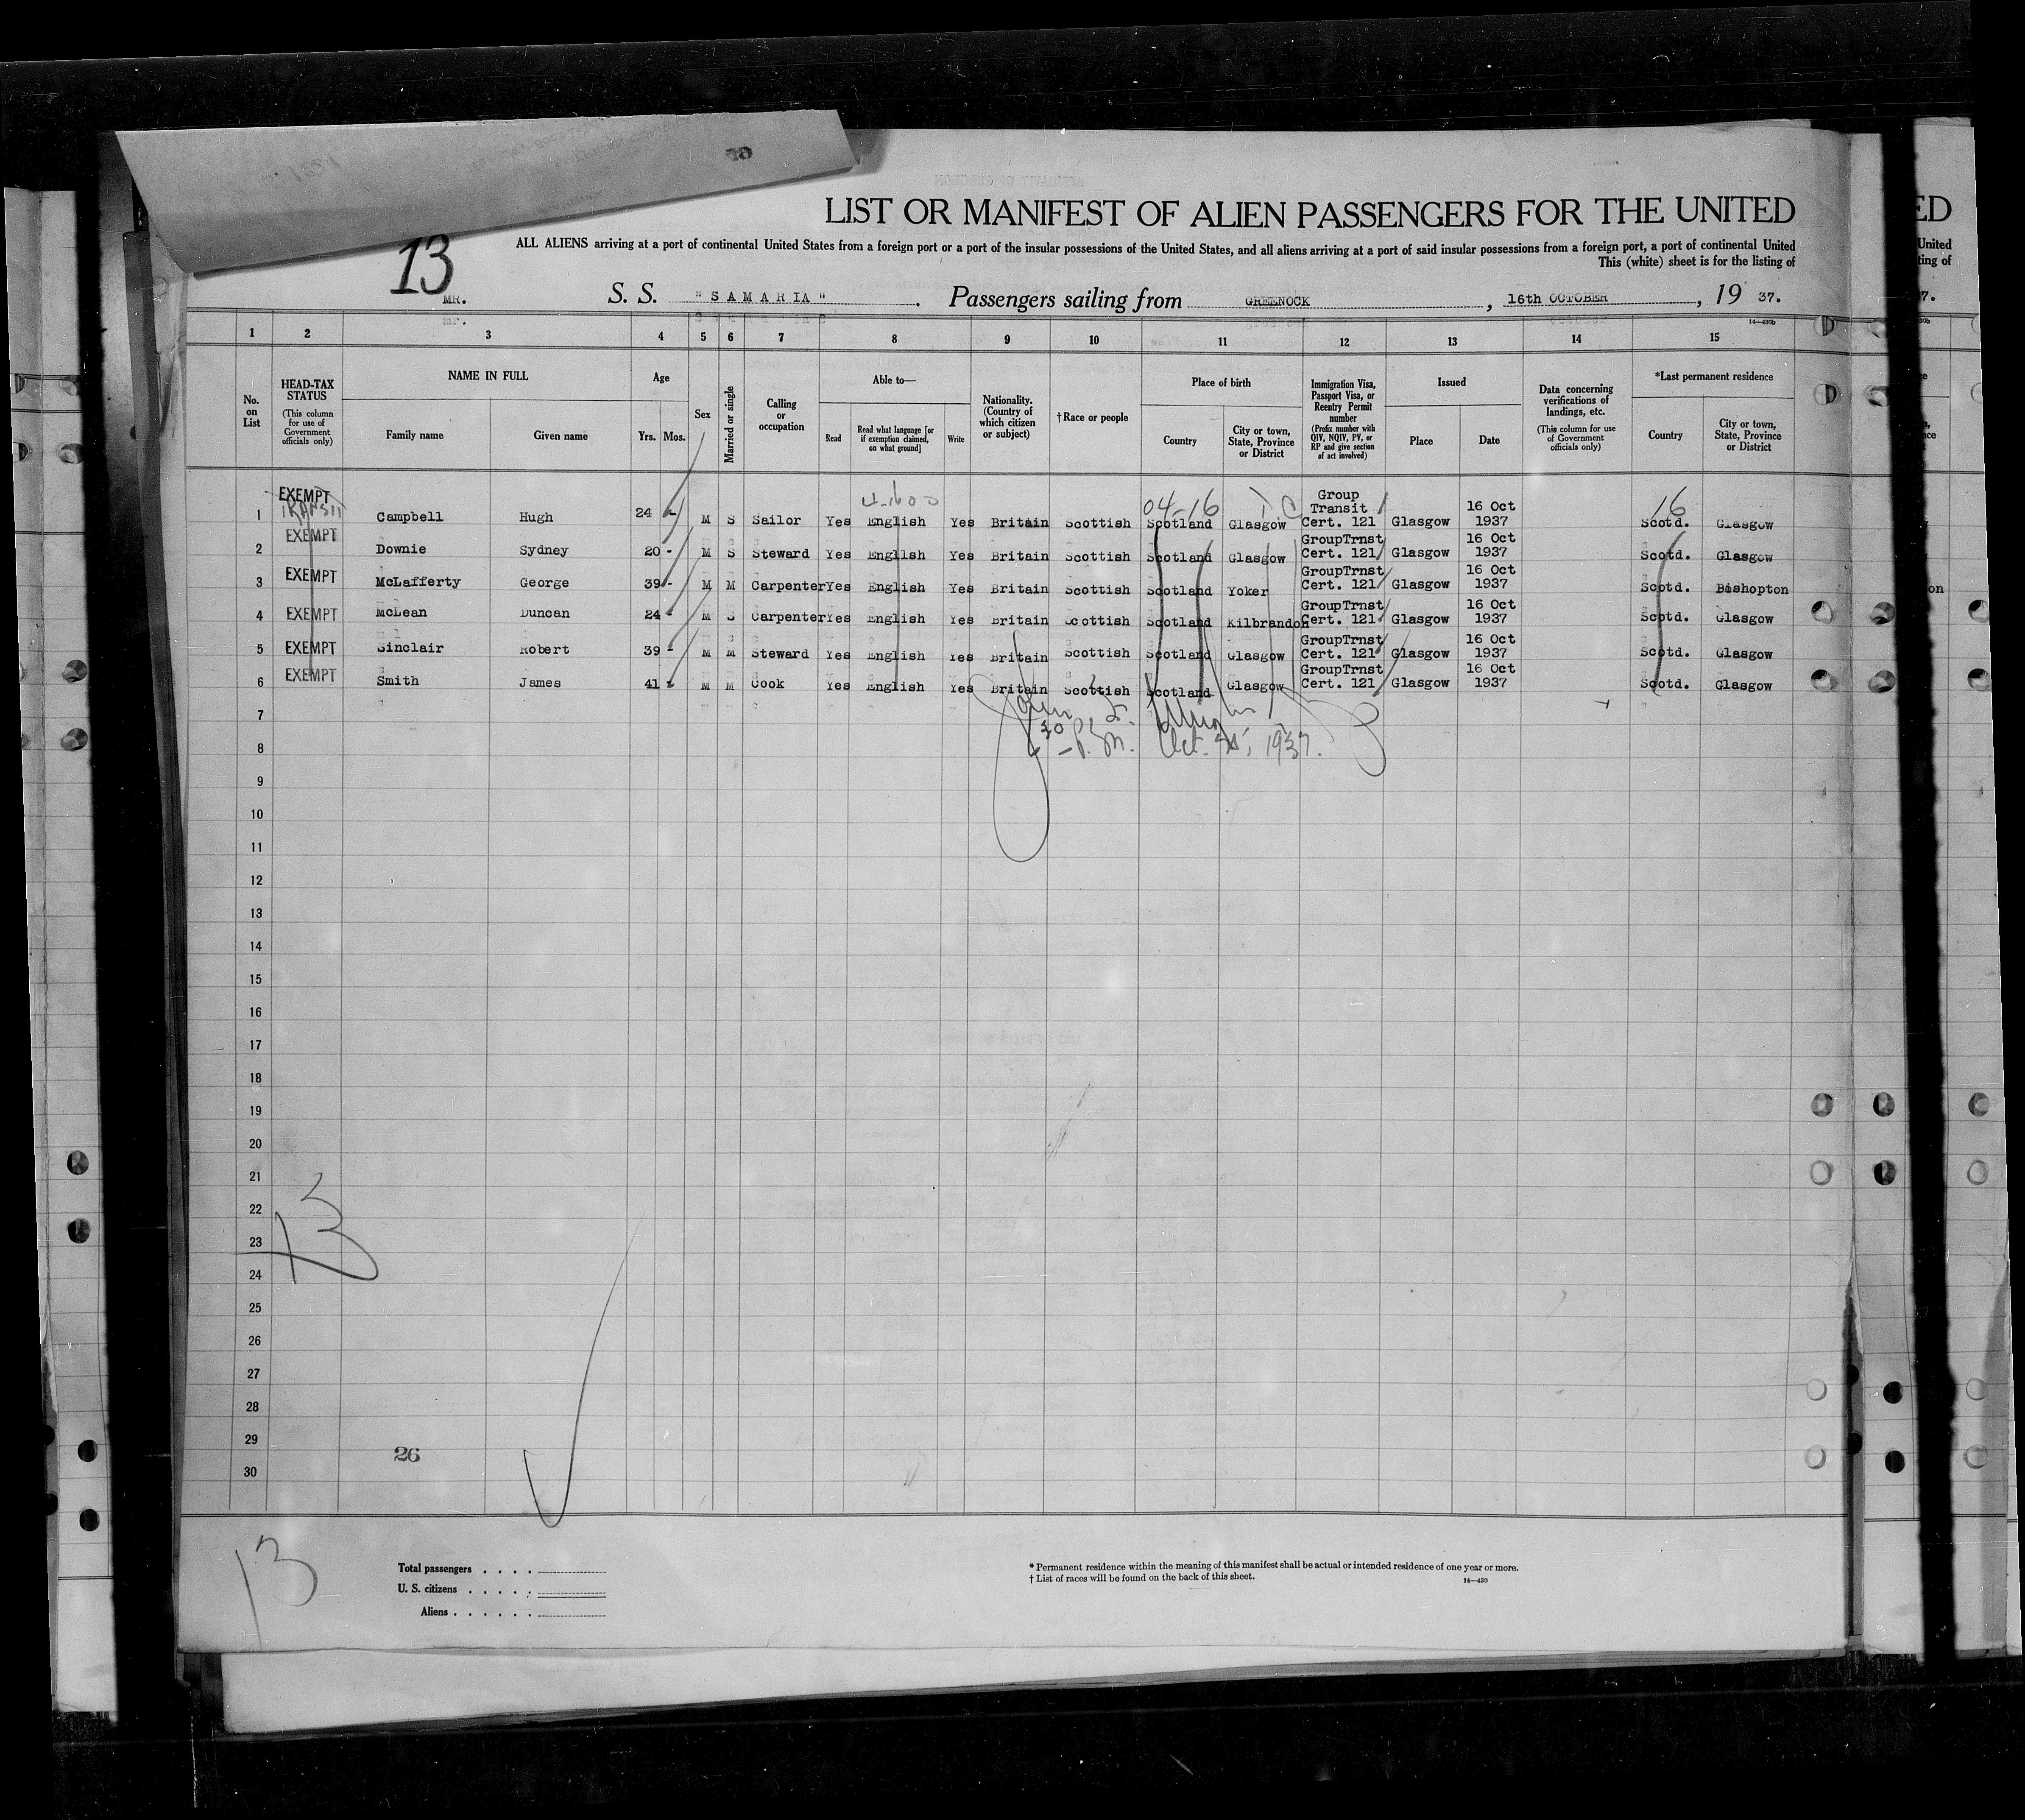 LIST OR MANIFEST OF ALIEN PASSENGERS FOR THE UNITED
ALL ALIENS arriving at a port of continental United States from a foreign port or a port of the insular possessions of the United States, and all aliens arriving at a port of said insular possessions from a foreign port, a port of continental United
This (white) sheet is for the listing of
13
MR.
S. S. "SAMARIA". Passengers sailing from GREENOCK, 16th OCTOBER, 19 37.
14—430b
1 2 3 4 5 6 7 8 9 10 11 12 13 14 15
No. on List
HEAD-TAX STATUS
(This column for use of Government officials only)
NAME IN FULL
Family name Given name
Age
Yrs. Mos.
Sex
Married or single
Calling or occupation
Able to—
Read
Read what language [or if exemption claimed, on what ground]
Write
Nationality. (Country of which citizen or subject)
†Race or people
Place of birth
Country
City or town, State, Province or District
Immigration Visa, Passport Visa, or Reentry Permit number
(Prefix number with QIV, NQIV, PV, or RP and give section of act involved)
Issued
Place Date
Data concerning verifications of landings, etc.
(This column for use of Government officials only)
*Last permanent residence
Country
City or town, State, Province or District
04-16 16
1 EXEMPT TRANSIT Campbell Hugh 24 - M S Sailor Yes English Yes Britain Scottish Scotland Glasgow Group Transit Cert. 121 Glasgow 16 Oct 1937 Scotd. Glasgow
2 EXEMPT Downie Sydney 20 - M S Steward Yes English Yes Britain Scottish Scotland Glasgow GroupTrnst Cert. 121 Glasgow 16 Oct 1937 Scotd. Glasgow
3 EXEMPT McLafferty George 39 - M M Carpenter Yes English Yes Britain Scottish Scotland Yoker GroupTrnst Cert. 121 Glasgow 16 Oct 1937 Scotd. Bishopton
4 EXEMPT McLean Duncan 24 - M S Carpenter Yes English Yes Britain Scottish Scotland Kilbrandon GroupTrnst Cert. 121 Glasgow 16 Oct 1937 Scotd. Glasgow
5 EXEMPT Sinclair Robert 39 - M M Steward Yes English Yes Britain Scottish Scotland Glasgow GroupTrnst Cert. 121 Glasgow 16 Oct 1937 Scotd. Glasgow
6 EXEMPT Smith James 41 - M M Cook Yes English Yes Britain Scottish Scotland Glasgow GroupTrnst Cert. 121 Glasgow 16 Oct 1937 Scotd. Glasgow
7
8
P.M. Oct. 1937.
9
10
11
12
13
14
15
16
17
18
19
20
21
22
23
13
24
25
26
27
28
29
26
30
13
Total passengers . . . .
U. S. citizens . . . . .
Aliens . . . . . .
* Permanent residence within the meaning of this manifest shall be actual or intended residence of one year or more.
† List of races will be found on the back of this sheet.
14—430
ED
United
ting of
7.
on